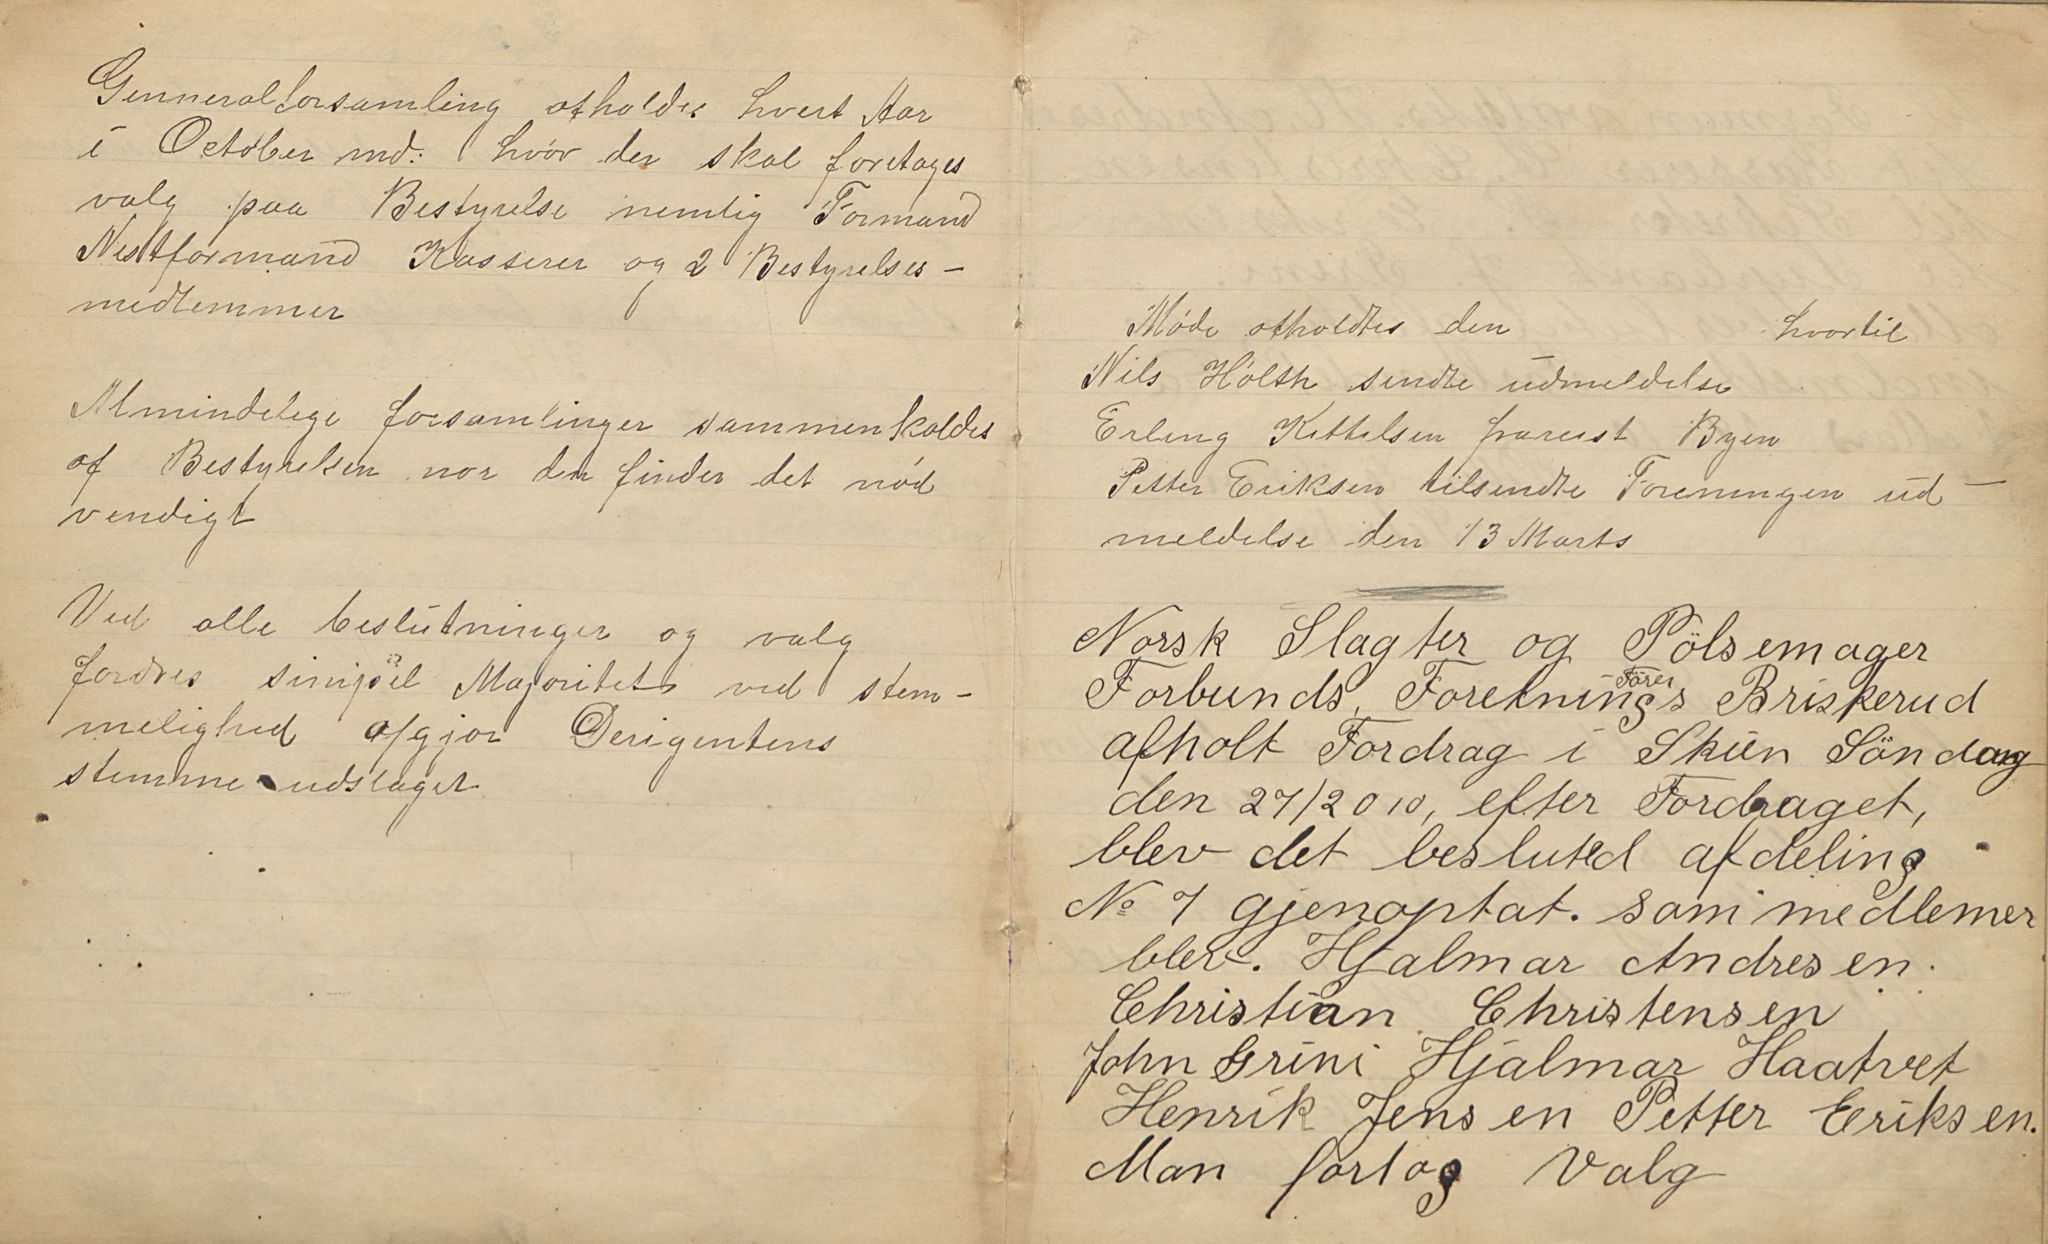 Genneralforsamling afholdes hvert Aar
i October md: hvor der skal foretages
valg paa Bestyrelse nemlig Formand
Nestformand Kasserer og 2 Bestyrelses-
medlemmer
Almindelege forsamlinger sammenkaldes
af Bestyrelsen nar den finder det nød
vendigt
Ved alle beslutninger og valg
fordres simpel Majoritet ved stem-
melighed afgjør Derigentens
stemme udslaget
Møde afholdtes den hvortil
Nils Holth sendte udmeldelse
Erling Kittilsen frareist Byen
Petter Eriksen tilsendte Foreningen ud-
meldelse den 13 Marts
Norsk Slagter og Pölsemager
Forbunds, Foretnings Fører Briskerud
afholt Fordrag i Skien Söndag
den 27/2 0 10, efter Fordraget,
blev det besluted afdeling
No 7 gjenoptat. som medlemer
blev. Hjalmar Andresen.
Christian Christensen
John Grini Hjalmar Haatvet
Henrik Jensen Petter Eriksen.
Man fortog Valg